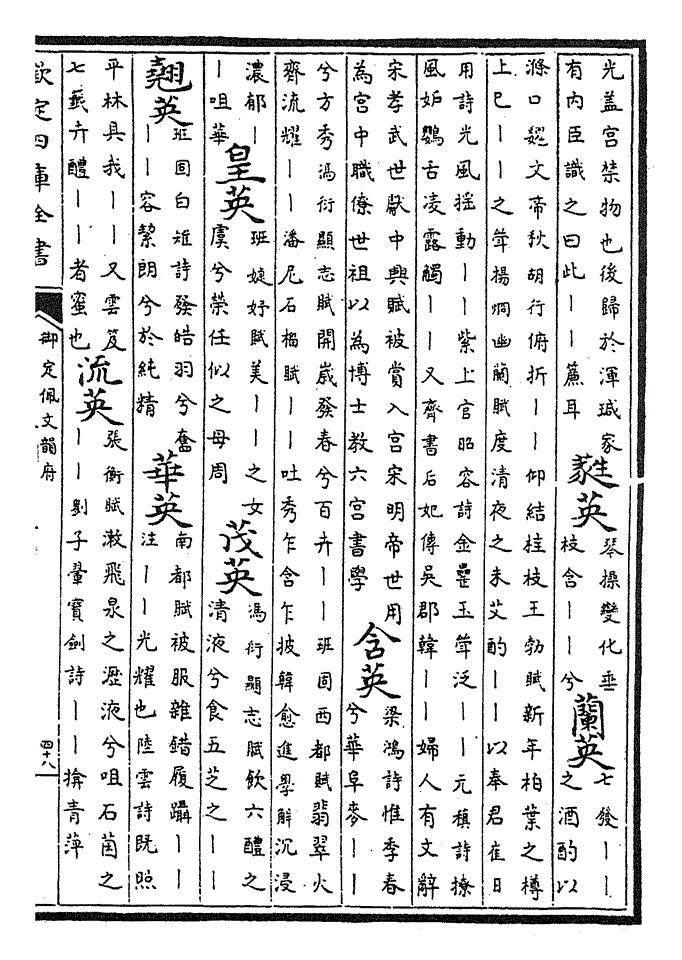 光蓋宫禁物也後歸於渾瑊家
有内臣識之曰此丨丨簾耳
蕤英
琴操變化垂
枝含丨丨兮
蘭英
七發丨丨
之酒酌以
滌口魏文帝秋胡行俯折丨丨仰結桂枝王勃賦新年柏葉之樽
上巳丨丨之斝揚烱幽蘭賦度清夜之未艾酌丨丨以奉君崔日
用詩光風揺動丨丨紫上官昭容詩金罍玉斝泛丨丨元稹詩撩
風妬鸚舌凌露觸丨丨又齊書后妃傳吳郡韓丨丨婦人有文辭
宋孝武世獻中興賦被賞入宫宋明帝世用
為宫中職僚世祖以為博士教六宫書學
含英
梁鴻詩惟季春
兮華阜麥丨丨
兮方秀馮衍顯志賦開嵗發春兮百卉丨丨班固西都賦翡翠火
齊流耀丨丨潘尼石榴賦丨丨吐秀乍含乍披韓愈進學解沉浸
濃郁丨
丨咀華
皇英
班婕妤賦美丨丨之女
虞兮榮任姒之母周
茂英
馮衍顯志賦飲六醴之
清液兮食五芝之丨丨
翹英
班固白雉詩發皓羽兮奮
丨丨容絜朗兮於純精
華英
南都賦被服雜錯履躡丨丨
注丨丨光耀也陸雲詩既煦
平林具我丨丨又雲笈
七籖卉醴丨丨者蜜也
流英
張衡賦漱飛泉之瀝液兮咀石菌之
丨丨劉子翬寳劍詩丨丨揜青萍
欽定四庫全書
御定佩文韻府
四十八